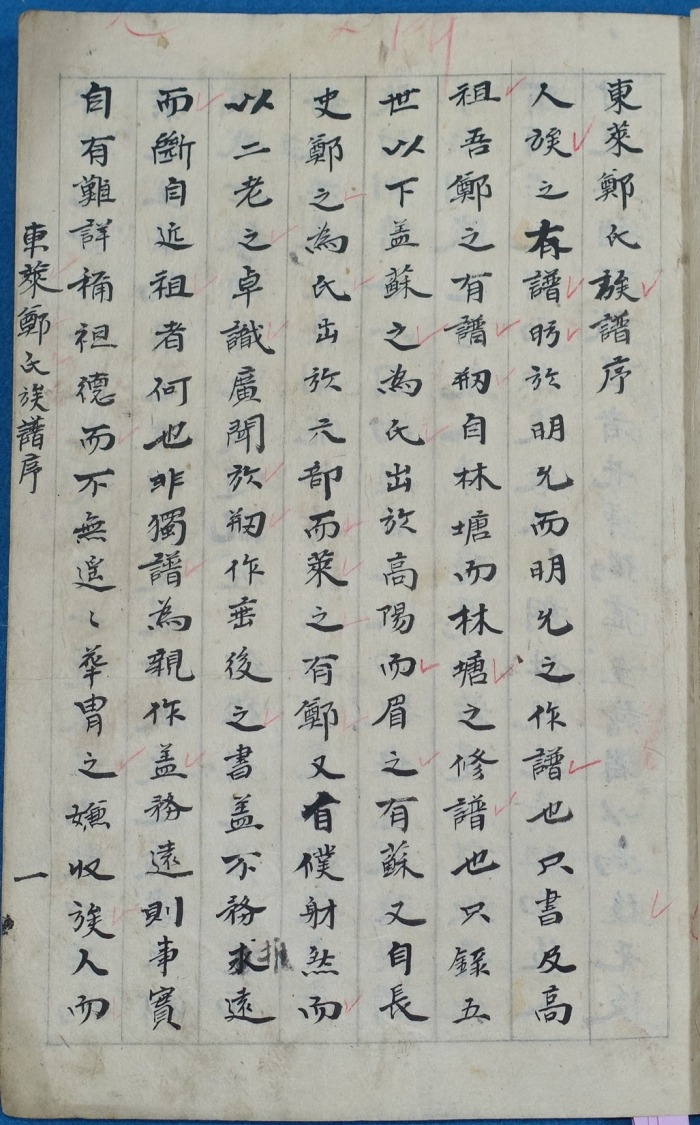 東萊鄭氏族譜序
人族之有譜昉於明允而明允之作譜也只書及高
祖吾鄭之有譜刱自林塘而林塘之修譜也只錄五
世以下盖蘇之為氏出於高陽而眉之有蘇又自長
史鄭之為氏出於六部而萊之有鄭又自僕射然而
以二老之卓識廣聞於刱作垂後之書盖不務求遠
而斷自近祖者何也非獨譜為親作盖務遠則事實
自有難詳稱祖德而不無遥〻華胄之嫌収族人而
東萊鄭氏族譜序
一